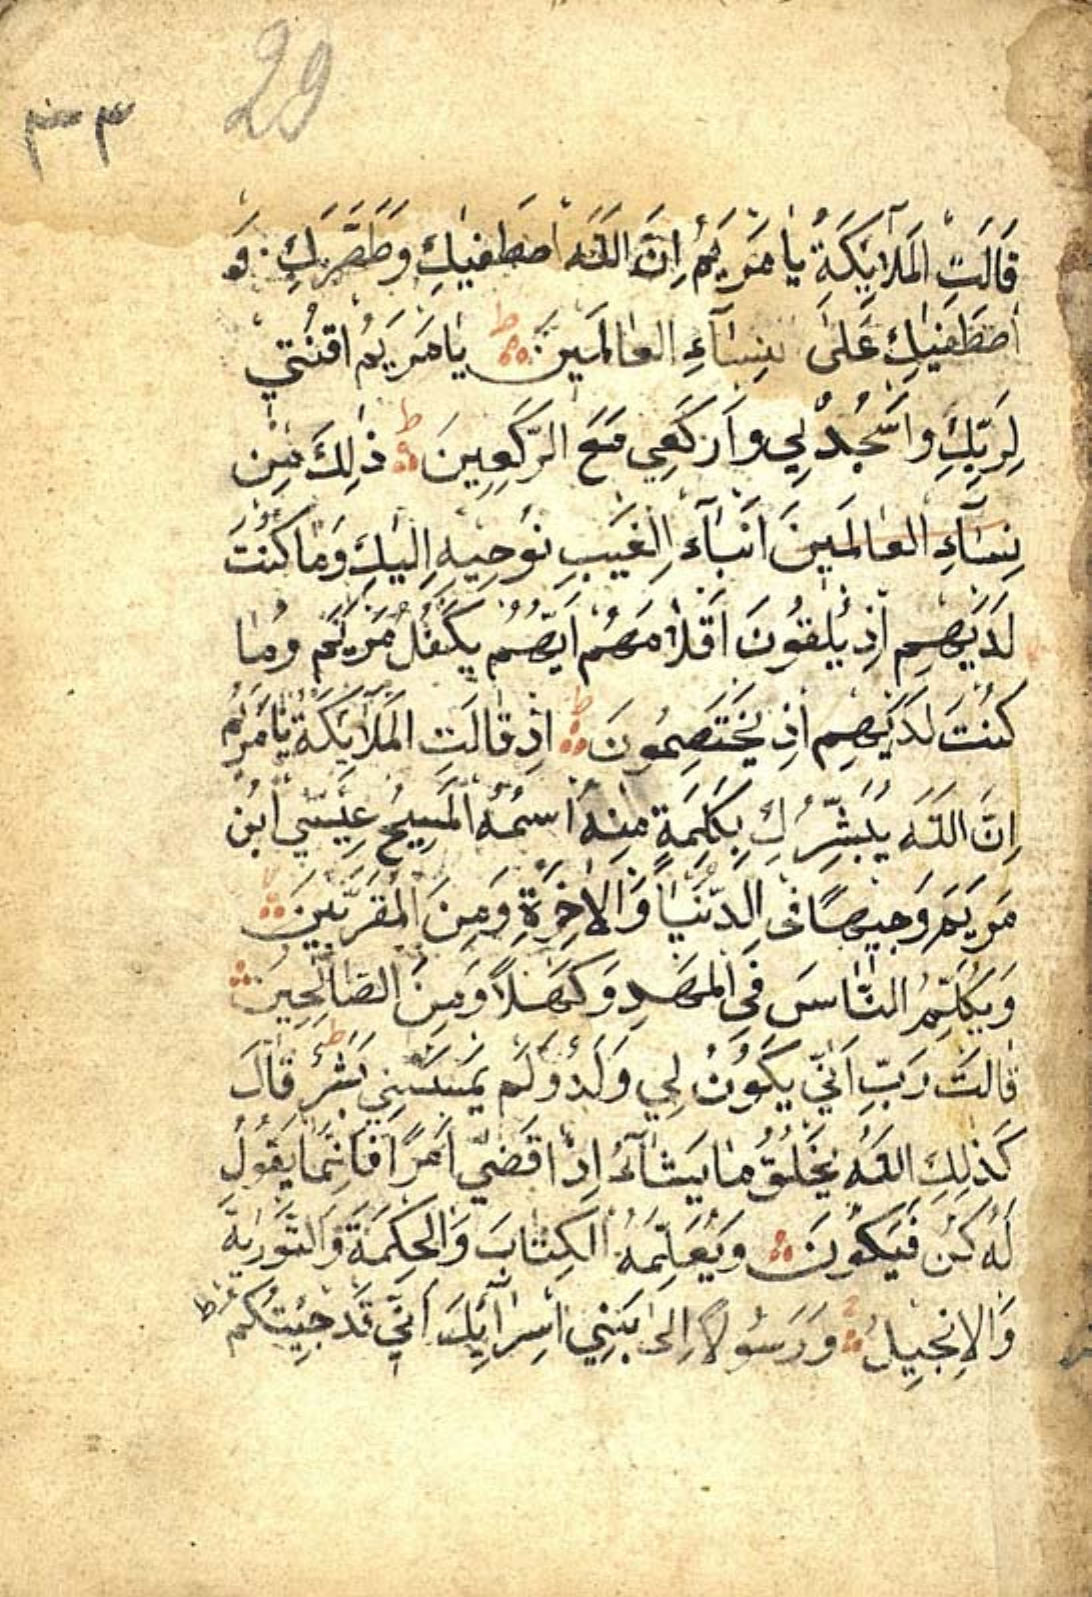 29
٣٠٣
قَالَتِ الْمَلَآئِكَةُ يَا مَرْيَمُ اِنَّ اللّٰهَ اصْطَفٰيكِ وَطَهَّرَكِ وَ
اصْطَفٰيكِ عَلٰى نِسَآءِ الْعَالَمِينَ ط يَا مَرْيَمُ اقْنُتِي
لِرَبِّكِ وَاسْجُدِي وَارْكَعِي مَعَ الرّٰكِعِينَ ط ذٰلِكَ مِنْ
نِسَآءِ الْعَالَمِينَ اَنْبَآءِ الْغَيْبِ نُوحِيهِ اِلَيْكَ وَمَا كُنْتَ
لَدَيْهِمْ اِذْ يُلْقُونَ اَقْلَامَهُمْ اَيُّهُمْ يَكْفُلُ مَرْيَمَ وَمَا
كُنْتَ لَدَيْهِمْ اِذْ يَخْتَصِمُونَ ط اِذْ قَالَتِ الْمَلَآئِكَةُ يَا مَرْيَمُ
اِنَّ اللّٰهَ يُبَشِّرُكِ بِكَلِمَةٍ مِنْهُ اسْمُهُ الْمَسِيحُ عِيسٰي ابْنُ
مَرْيَمَ وَجِيهًا فِي الدُّنْيَا وَالْاٰخِرَةِ وَمِنَ الْمُقَرَّبِينَ لا
وَيُكَلِّمُ النَّاسَ فِي الْمَهْدِ وَكَهْلًا وَمِنَ الصَّالِحِينَ
قَالَتْ رَبِّ اَنّٰي يَكُونُ لِي وَلَدٌ وَلَمْ يَمْسَسْنِي بَشَرٌ ط قَالَ
كَذٰلِكِ اللّٰهُ يَخْلُقُ مَا يَشَآءُ اِذَا قَضٰي اَمْرًا فَاِنَّمَا يَقُولُ
لَهُ كُنْ فَيَكُونُ وَيُعَلِّمُهُ الْكِتَابَ وَالْحِكْمَةَ وَالتَّوْرٰيةَ
وَالْاِنْجِيلَ وَرَسُولًا اِلٰى بَنِي اِسْرَآئِلَ اَنِّي قَدْ جِئْتُكُمْ